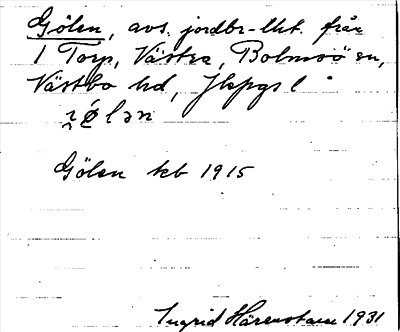 Gölen, avs. jordbr-lht. från
1 Torp, Västra, Bolmsö sn,
Västbo hd, Jkpgs l
Gölen kb 1915
Ingrid Härenstam 1931